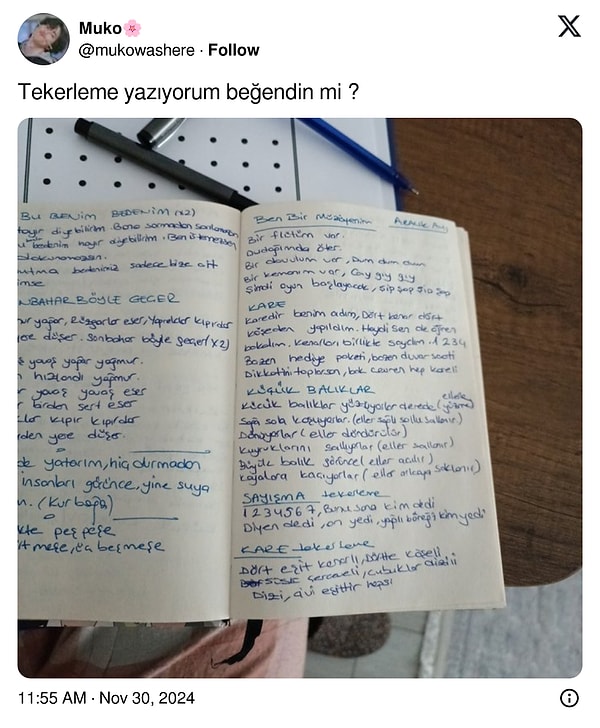 Muko🌸
@mukowashere · Follow
Tekerleme yazıyorum beğendin mi ?
BU BENİM BEDENİM (x2)
hayır diyebilirim. Bana sormadan sarılamazsın
bedenim hayır diyebilirim. Ben istemezsem
dokunamazsın.
bedenimiz sadece bize ait
NBAHAR BÖYLE GEÇER
ur yağar, Rüzgarlar eser, Yapraklar kıpırdar
yere düşer. Sonbahar böyle geçer (x2)
yavaş yağar yağmur.
hızlandı yağmur.
yavaş yavaş eser
birden sert eser
lar kıpır kıpırdar
rden yere düşer.
yatarım, hiç durmadan
insanları görünce, yine suya
(Kurbağa)
kte peş peşe
Ben Bir Müzisyenim Aralık Ayı
Bir flütüm var.
Dudağımda öter.
Bir davulum var, Dum dum dum
Bir kemanım var, Gıy gıy gıy
Şimdi oyun başlayacak, Şıp şap şıp şap
KARE
Karedir benim adım, Dört kenar dört
köşeden yapıldım. Haydi sen de öğren
bakalım. Kenarları birlikte sayalım. 1 2 3 4
Bazen hediye paketi, bazen duvar saati
Dikkatini toplarsan, bak çevren hep kareli
KÜÇÜK BALIKLAR
Küçük balıklar yüzüyorlar derede (ellerle yüzme)
Sağa sola koşuyorlar. (eller sağlı sollu sallanır)
Dönüyorlar (eller döndürülür)
Kuyruklarını sallıyorlar (eller sallanır)
Büyük balık görünce (eller açılır)
kaçıyorlar (eller arkaya saklanır)
SAYIŞMA tekerleme
1 2 3 4 5 6 7, Bunu sana kim dedi
Diyen dedi, on yedi, yağlı böreği kim yedi
KARE tekerleme
Dört eşit kenarlı, Dörtte köşeli
Süslü çerçeveli, çubuklar dizili
Dizi, çivi eşittir hepsi
11:55 AM · Nov 30, 2024